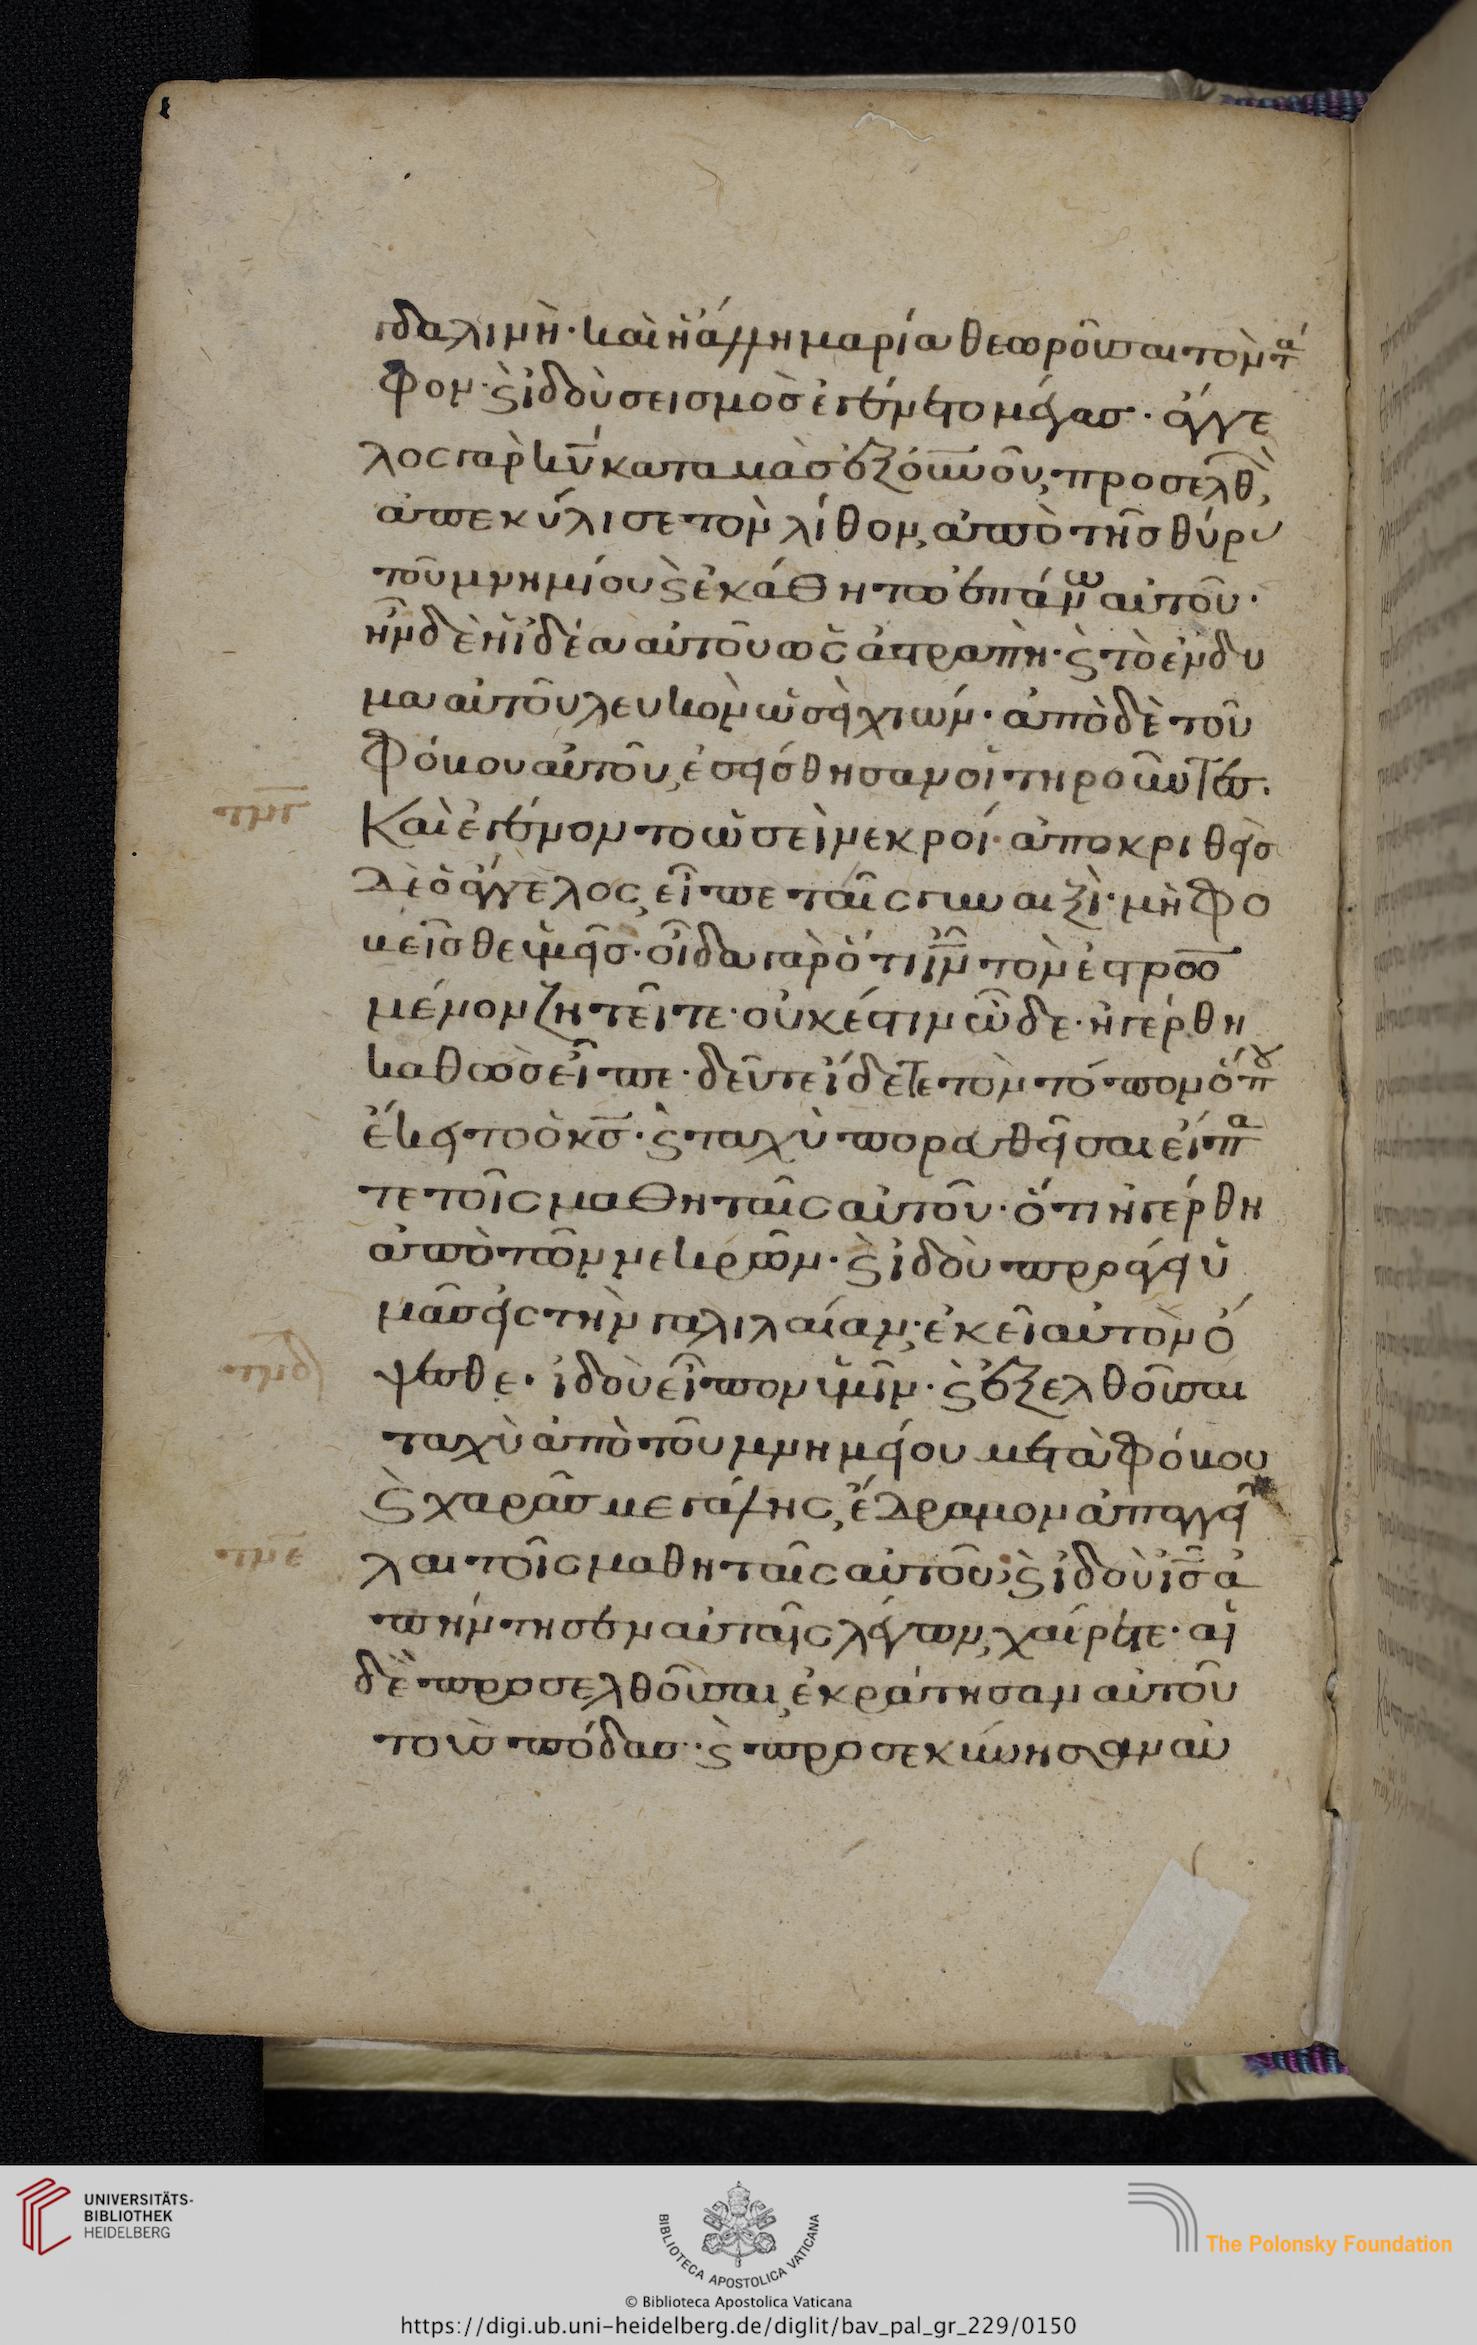 γδαλινὴ· καὶ ἡ ἄλλη μαρία θεωρῆσαι τὸν τά
φον· ϛ ἰδοὺ σεισμὸσ ἐγένετο μέγασ· ἄγγε
λος γὰρ κυ̅ καταβὰσ ἐξ ου̅νου̅, προσελθὼ̅
ἀπεκύλισε τὸν λίθον, ἀπὸ τῆσ θύρασ
τοῦ μνημίου ϛ ἐκάθητο ἐπάνω αὐτοῦ·
ἦν δὲ ἡ ἰδέα αὐτοῦ ως ἀστραπὴ· ϛ τὸ ἔνδυ
μα αὐτοῦ λευκὸν ὡσεὶ χιών· ἀπὸ δὲ τοῦ
φόβου αὐτοῦ, ἐσείσθησαν οἱ τηροῦντεσ·
Καὶ ἐγένοντο ὡσεὶ νεκροί· ἀποκριθεὶσ
δὲ ὁ ἄγγελος, εἶπε ταῖς γυναιξὶ· μὴ φο
βεῖσθε ὑμεῖσ· οἶδα γὰρ ὅτι ιν̅ τὸν ἐστρωο
μένον ζητεῖτε· οὐκ έστιν ὧδε· ἠγέρθη
καθὼσ εἶπε· δεῦτε ἴδετε τὸν τόπον ὅπου
ἔκειτο ὁ κσ̅· ϛ ταχὺ πορευθεῖσαι εἴπα
τε τοῖς μαθηταῖς αὐτοῦ· ὅτι ἠγέρθη
ἀπὸ τῶν νεκρῶν· ϛ ἰδοὺ προάγει ὑ
μᾶσ εἰς τὴν γαλιλαίαν· ἐκεῖ αὐτὸν ὄ
ψεσθε· ἰδοὺ εἶπον ὑμῖν· ϛ ἐξελθοῦσαι
ταχὺ ἀπὸ τοῦ μνημείου μετὰ φόβου
ϛ χαρᾶσ μεγάλης, ἔδραμον ἀπαγγεῖ
λαι τοῖς μαθηταῖς αὐτοῦ· ϛ ἰδοὺ ισ̅ ἀ
πήντησεν αὐταῖς λέγων, χαίρετε· αἱ
δὲ προσελθοῦσαι, ἐκράτησαν αὐτοῦ
τοὺσ πόδασ· ϛ προσεκύνησαν αὐ
UNIVERSITÄTS-
BIBLIOTHEK
HEIDELBERG
BIBLIOTECA APOSTOLICA VATICANA
The Polonsky Foundation
© Biblioteca Apostolica Vaticana
https://digi.ub.uni-heidelberg.de/diglit/bav_pal_gr_229/0150